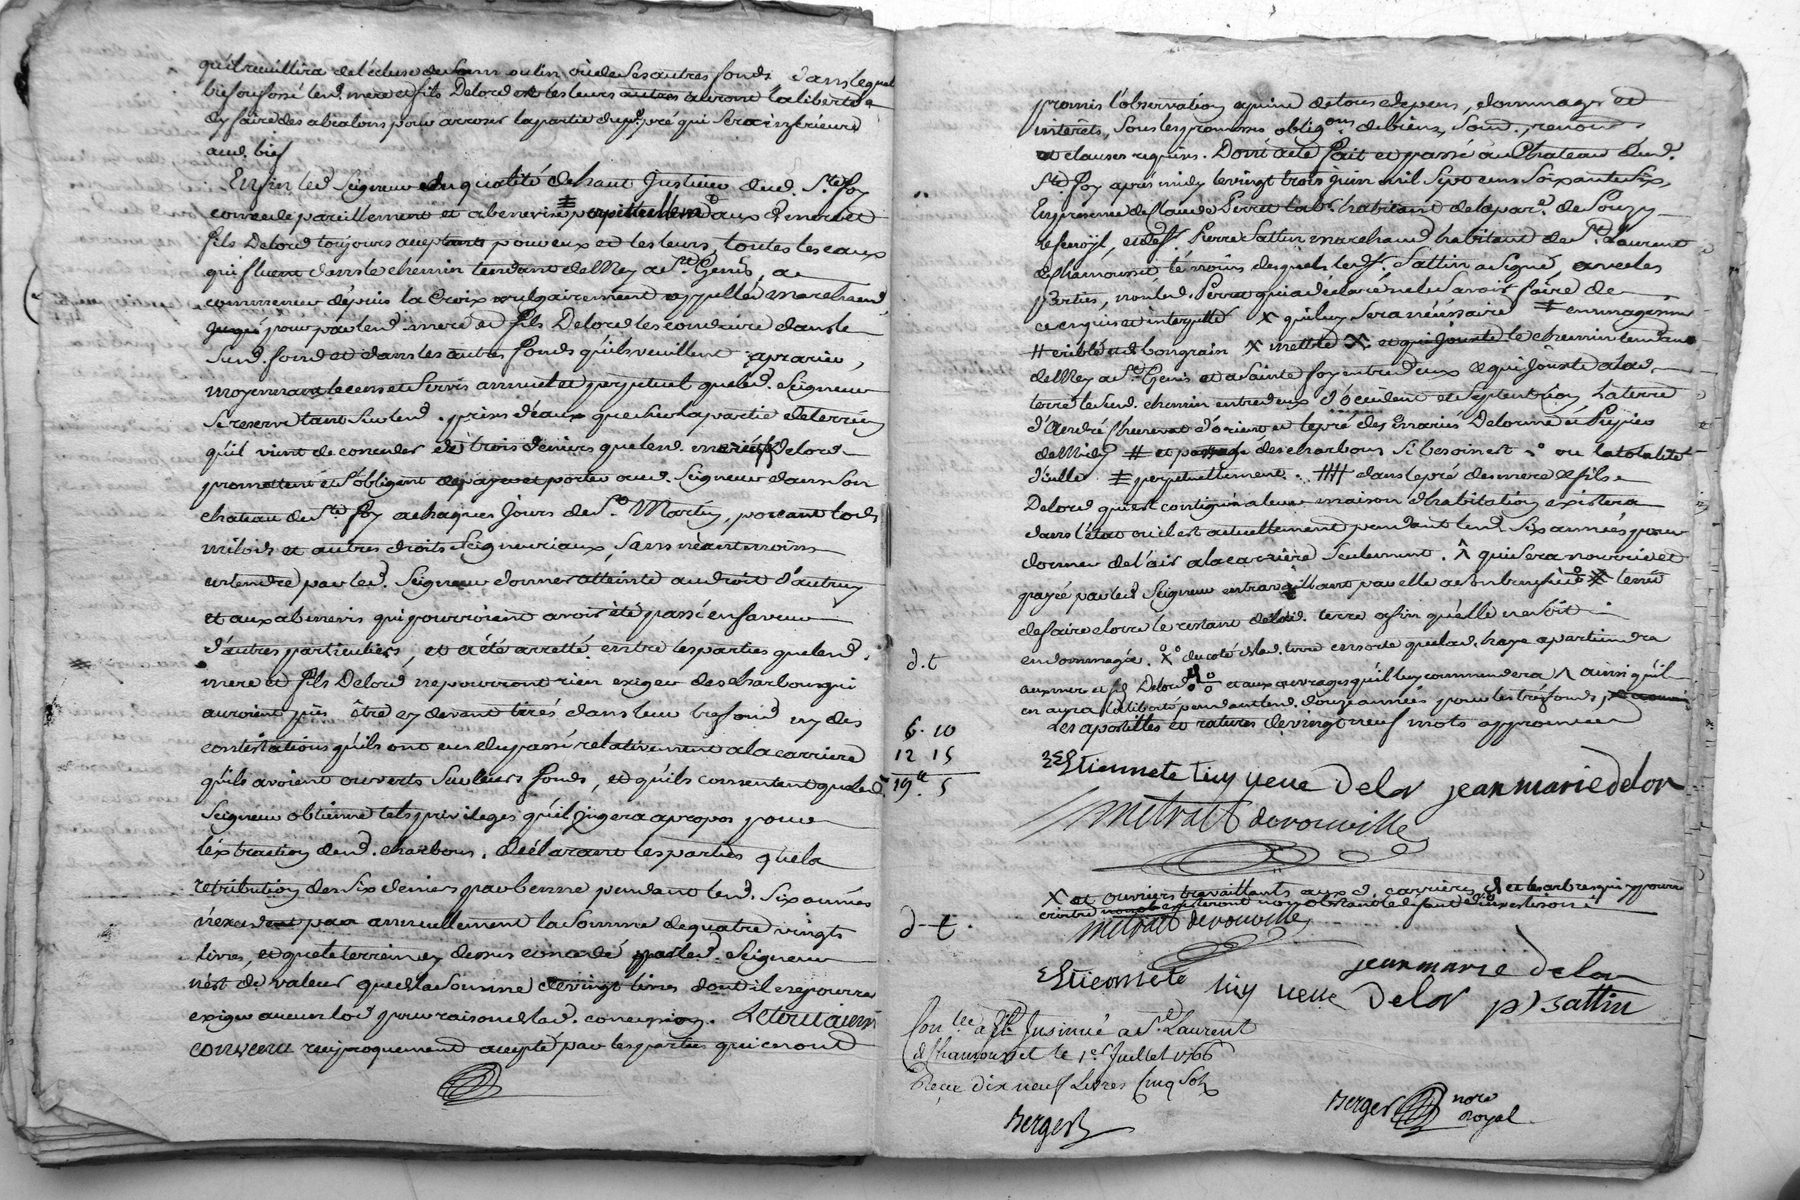 qu'il cueillira de l'écluse de son ou de ses autres fonds dans lequel
bief ou fossé lesd. mere et fils Delord et les leurs auront la liberté
d'y faire des abealons pour arroser la partie dud. pré qui sera inférieure
aud. bief
Enfin led. Seigneur en qualité de haut Justicier dud. Ste foy
concede pareillement et abenevise aux d. mere et
fils Delord toujours acceptants pour eux et les leurs, toutes les eaux
qui fluent dans le chemin tendant de Mey a St Genis, a
commencer depuis la Croix vulgairement appellée marchand
jusques pour par lesd. mere et fils Delord les conduire dans le
susd. fond et dans les autres fonds qu'ils veuillent aprarier,
moyennant le cens et servis annuel et perpetuel que led. Seigneur
se reserve tant sur lesd. prises d'eaux que sur la partie de terrein
qu'il vient de conceder de trois deniers que lesd. mere et fils Delord
promettent et s'obligent de payer et porter aud. Seigneur dans son
chateau de Ste foy a chaques jours de St Martin, portant lods
milods et autres droits Seigneuriaux, sans néantmoins
entendre par led. Seigneur donner atteinte au droit d'autruy
et aux abenevis qui pourroient avoir été passé en faveur
d'autres particuliers, et a été arretté entre les parties que lesd.
mere et fils Delord ne pourront rien exiger des charbons qui
auroient pu être cy devant tirés dans leur tresfond ny des
contestations qu'ils ont eues du passé relativement a la carriere
qu'ils avoient ouverte sur leurs fonds, et qu'ils consentent que led.
Seigneur obtienne tels privileges qu'il jugera a propos pour
l'extraction desd. charbons, declarant les parties que la
retribution des six deniers par benne pendant lesd. six années
n'excedent pas annuellement la somme de quatre vingts
livres, et que le terrein cy dessus concedé par led. Seigneur
n'est de valeur que de la somme de vingt livres dont il ne pourra
exiger aucun lod pour raison de lad. concession. Le tout ainsi
convenu reciproquement accepté par les parties qui en ont
promis l'observation a peine de tous depens, dommages et
interêts, sous les promesses obligons de biens, soum., renon
et clauses requises. Dont acte fait et passé au Chateau dud.
Ste foy après midy le vingt trois juin mil sept cens soixante six,
En presence de Claude Perret labr. habitant de la par.e de Souzy
et de Sr. Pierre Sattin marchand habitant de St Laurent
de chamousset témoins desquels led. Sr. Sattin a signé, avec les
parties, non led. Perret qui a declaré ne le savoir faire de
ce enquis et interpellé X qui luy sera nécessaire
X mettre X et qui jouxte le chemin tendant
de Mey a St Genis et a Sainte foy entre deux et qui jouxte a lad.
terre le susd. chemin entre deux d'occident et septentrion, la terre
d'André d'orient et le pré des mariés Delorme et
de Midy # et des charbons si besoin est ou la totalité
d'icelle perpetuellement. dans le pré des mere et fils
Delord qui est contigu a leur maison d'habitation existera
dans l'état ou il est actuellement pendant lesd. six années pour
donner de l'air a la carriere seulement. qui sera nourrie et
payée par led. Seigneur en travaillant par elle a son benefice tenu
de faire clorre le restant de lad. terre afin qu'elle ne soit
endommagée. X du coté de lad. terre en sorte que lad. haye apartiendra
aux mere et fils Delord et aux ouvrages qu'il luy commandera ainsi qu'il
en aura la liberté pendant lesd. douze années pour les tréfonds
Les apostilles et ratures de vingt neuf mots approuvées
Estiennete tiuy veuve Delor jean marie delor
Mitrait devouville
X et ouvriers travaillants aux d. carrières et les arbres qui pourr
mitrait devouville
jean marie delor
Estiennete tiuy veuve Delor p) Sattin
d. t
6. 10
12 15
19tt. 5
d - t.
Con.lée Insinué a St Laurent
de Chamousset le 1er Juillet 1766
Reçu dix neuf livres cinq sols
Berger
Berger nore
Royal